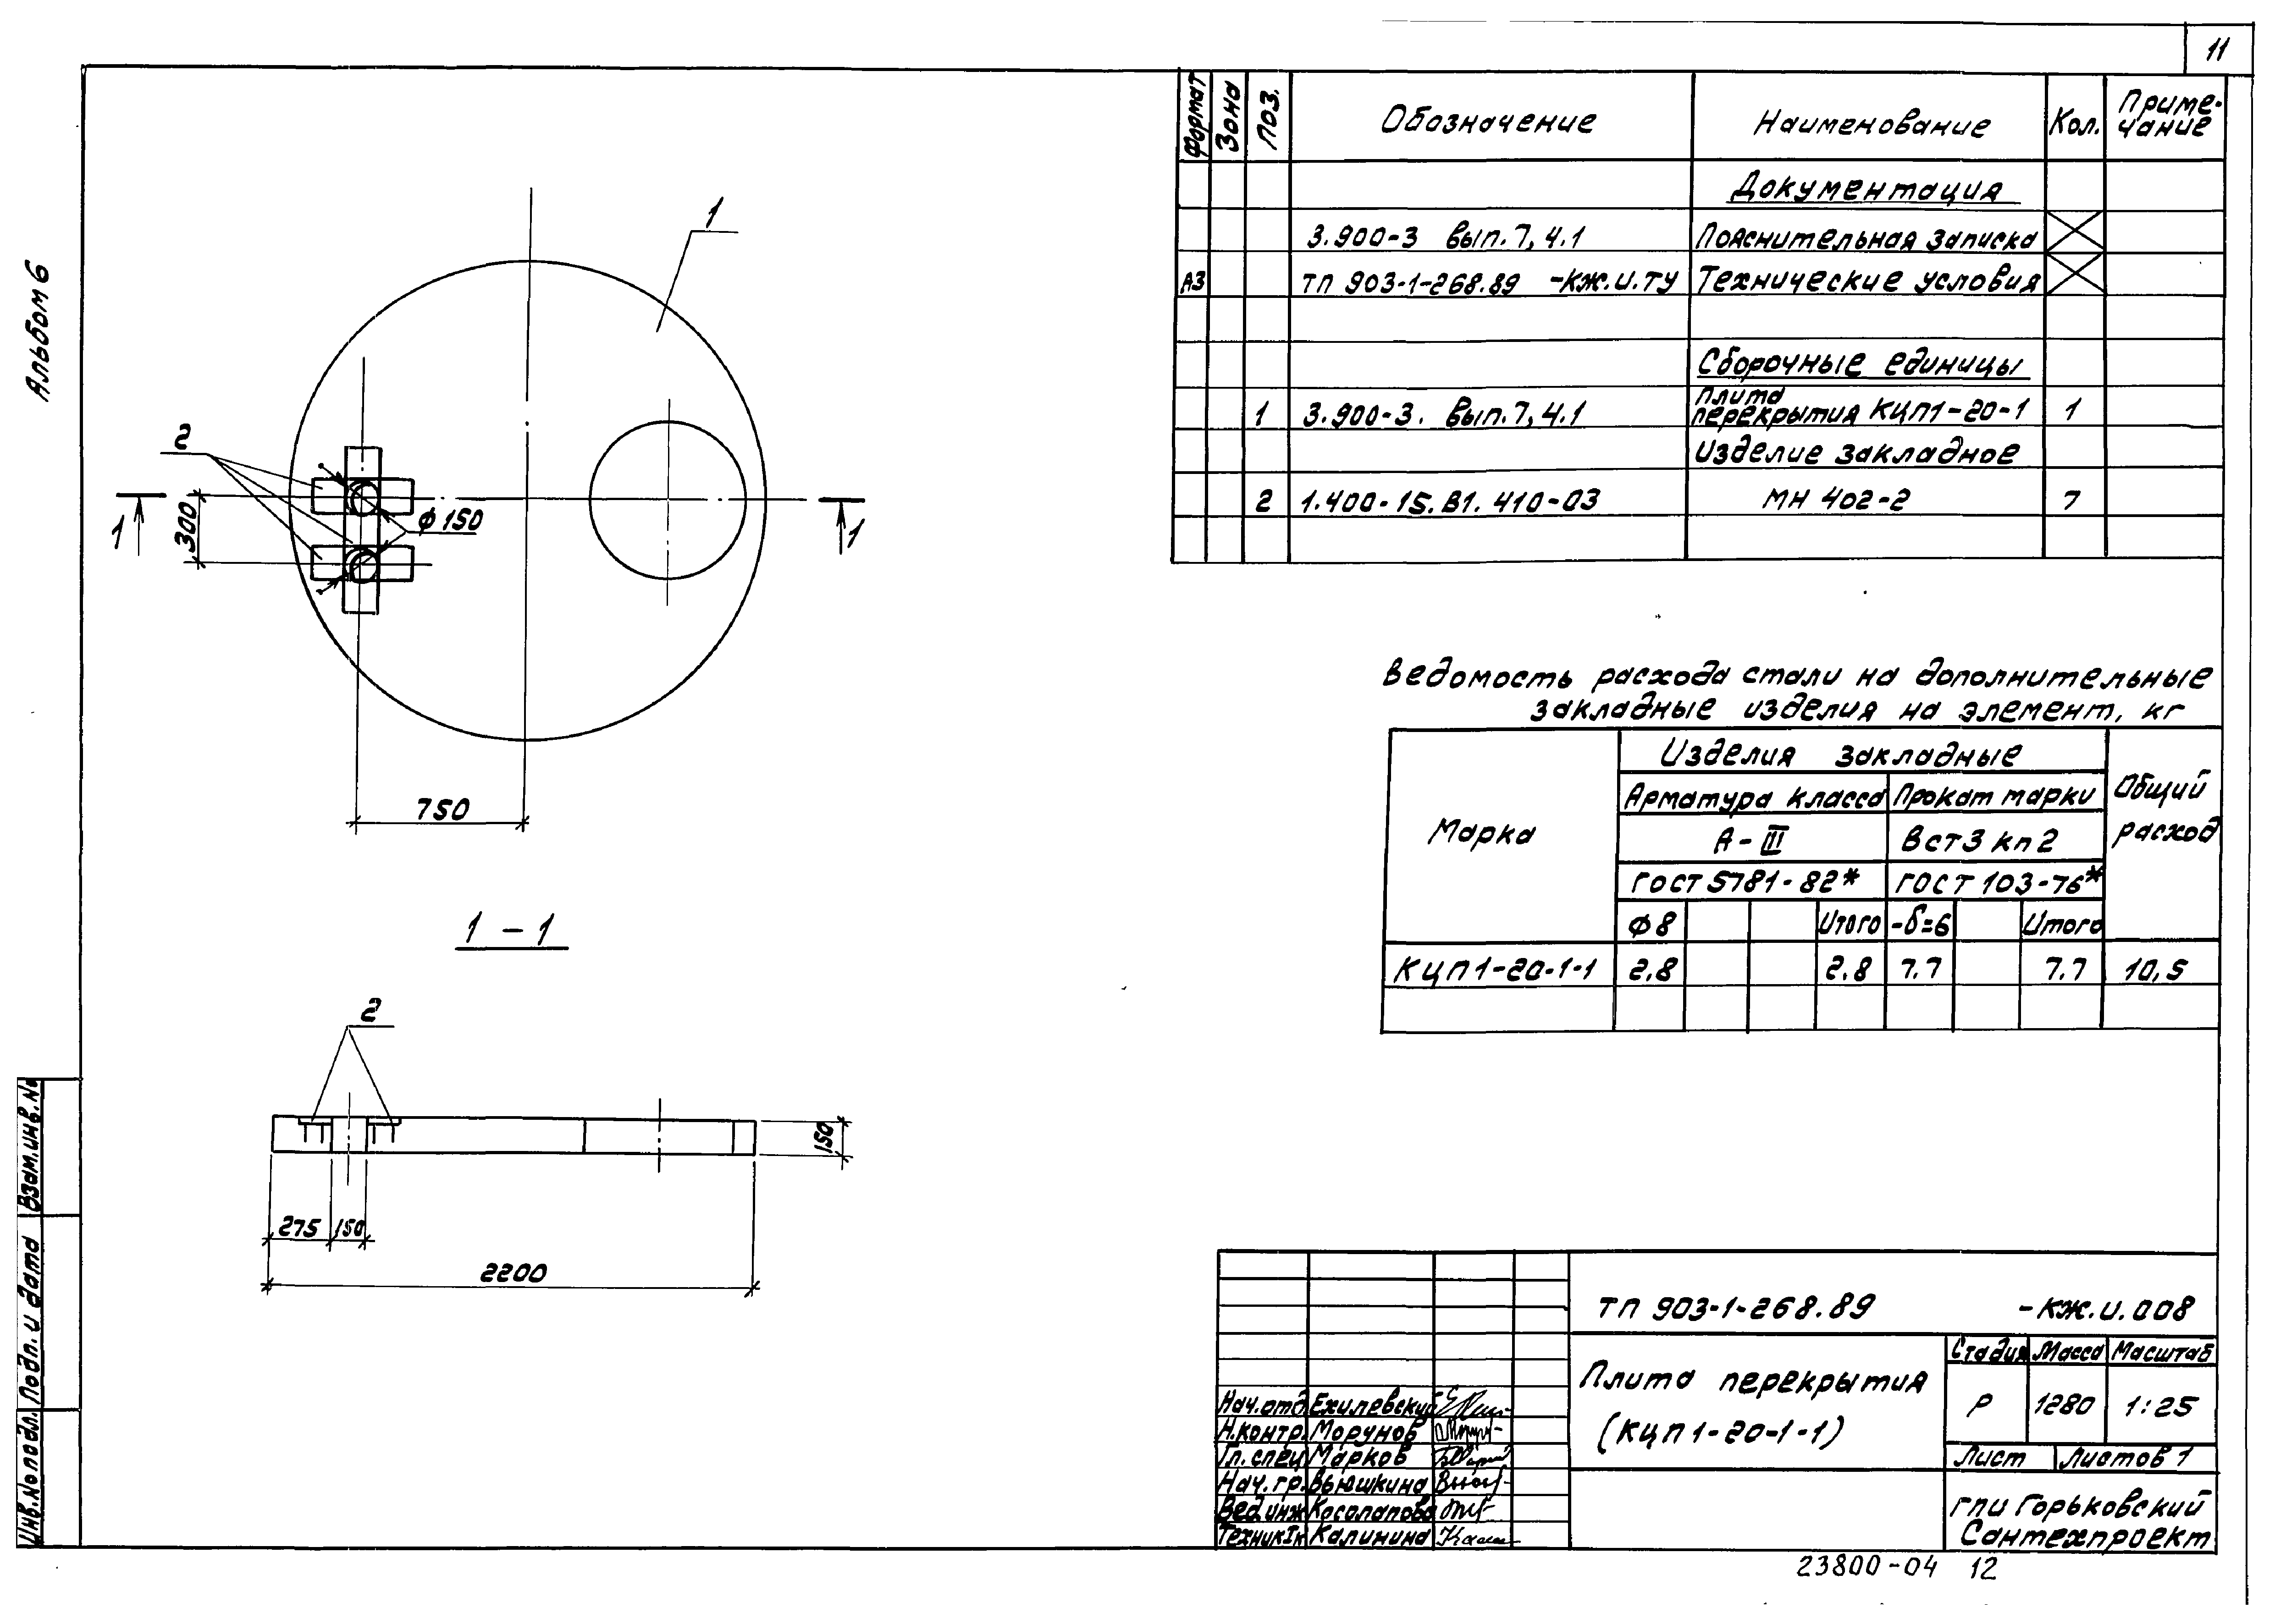 11
Альбом 6
Формат Зона Поз. Обозначение Наименование Кол. Приме-
чание
Документация
3.900-3 Вып.7, ч.1 Пояснительная записка
А3 ТП 903-1-268.89 -КЖ.И.ТУ Технические условия
Сборочные единицы
Плита
1 3.900-3. Вып.7, ч.1 перекрытия КЦП1-20-1 1
Изделие закладное
2 1.400-15.В1. 410-03 МН 402-2 7
1
2
1 1
300
ф150
750
1-1
2
150
275 150
2200
Ведомость расхода стали на дополнительные
закладные изделия на элемент, кг
Марка Изделия закладные Общий
расход
Арматура класса Прокат марки
А-III Вст3 кп2
ГОСТ 5781-82* ГОСТ 103-76*
Ф8 Итого -δ=6 Итого
КЦП1-20-1-1 2,8 2,8 7.7 7.7 10,5
ТП 903-1-268.89 -КЖ.И.008
Плита перекрытия
(КЦП1-20-1-1)
Стадия Масса Масштаб
Р 1280 1:25
Лист Листов 1
ГПИ Горьковский
Сантехпроект
Нач.отд. Ехилевский
Н.контр. Морунов
Гл.спец Марков
Нач.гр. Вьюшкина
Вед.инж Косолапова
ТехникIк Калинина
Инв.№подл. Подп. и дата Взам.инв.№
23800-04 12